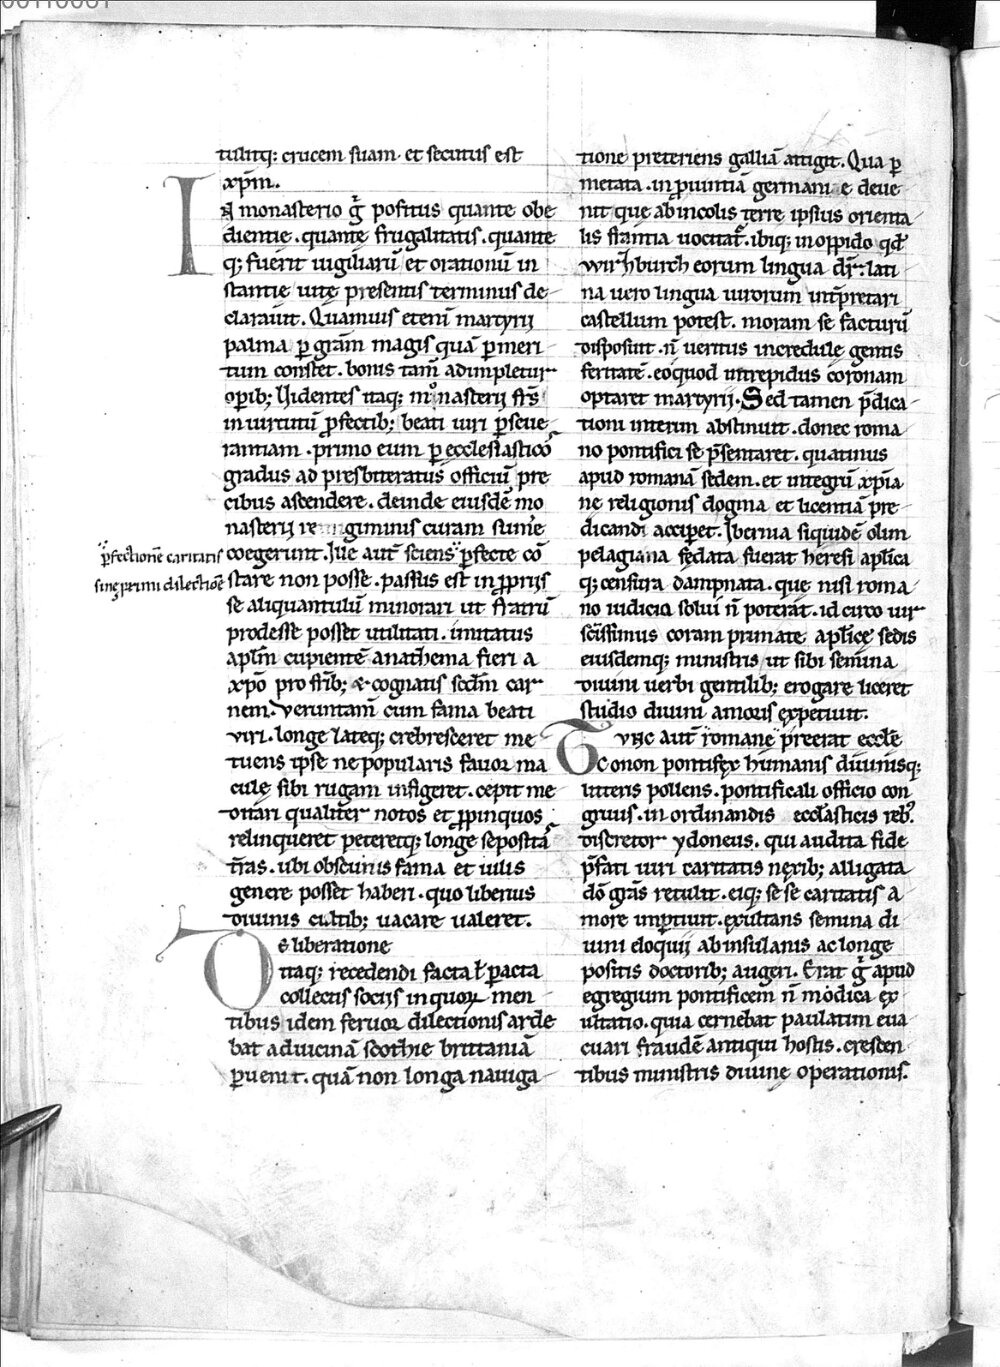 tulitq; crucem suam. et secutus est
xp̄m.
IN monasterio g̊ positus quante obe
dientie. quante frugalitatis. quante
q; fuerit uigiliarū et orationū in
stantie uitę presentis terminus de
clarauit. Quamuis etenī martyrij
palma p̱ grām magis quā p̱ meri
tum constet. bonis tam̄ adimpletur
op̱ib; Uidentes itaq; monasterij frs̄
in uirtutū p̱fectib; beati uiri p̱seue
rantiam. primo eum p̱ ecclesiasticos
gradus ad presbiteratus officiū pre
cibus ascendere. deinde eiusdē mo
nasterij regiminis curam sumere
coegerunt. Ille aut̄ sciens p̱fecte cō
p̱fectionē caritatis
sine primi dilectiōe
stare non posse. passus est in p̱prijs
se aliquantulū minorari ut fratrū
prodesse posset utilitati. imitatus
apl̄m cupientē anathema fieri a
xp̄o pro fr̄ib; & cognatis scd̄m car
nem. Veruntam̄ cum fama beati
viri. longe lateq; crebresceret me
tuens ipse ne popularis fauor ma
culę sibi rugam infigeret. cepit me
ditari qualiter notos et p̱pinquos
relinqueret peteretq; longe sepositā
tr̄as. ubi obscuris fama et uilis
genere posset haberi. quo liberius
diuinis cultib; uacare ualeret.
Deliberatione
itaq; recedendi facta ł p̱acta
collectis socijs in quoꝝ men
tibus idem feruor dilectionis arde
bat ad uicinā scothie brittaniā
p̱uenit. quā non longa nauiga
tione preteriens galliā attigit. Qua p̱
metata. in p̱uintiā germanie deue
nit que ab incolis terre ipsius orienta
lis frantia uocitat̄. ibiq; in oppido qd̄
wirzburch eorum lingua dr̄. lati
na uero lingua uirorum int̄pretari
castellum potest. moram se facturū
disposuit. n̄ ueritus incredule gentis
feritatē. eo quod intrepidus coronam
optaret martyrij. Sed tamen p̄dica
tioni interim abstinuit. donec roma
no pontifici se p̄sentaret. quatinus
apud romanā sedem. et integrū xp̄ia
ne religionis dogma et licentiā pre
dicandi accip̱et. Ibernia siquidē olim
pelagiana fedata fuerat heresi aplica
q; censura dampnata. que nisi roma
no iudicio solui n̄ poterat. id circo uir
sc̄issimus coram primate aplicę sedis
eiusdemq; ministris ut sibi semina
diuini uerbi gentilib; erogare liceret
studio diuini amoris expetiuit.
Tunc aut̄ romane preerat eccle
Conon pontifex humanis diuinisq;
litteris pollens. pontificali officio con
gruus. in ordinandis ecclasticis reb;
discretor ydoneus. qui audita fide
p̄fati uiri caritatis nexib; alligata
dō grās retulit. eiq; se se caritatis a
more imp̱tiuit. exultans semina di
uini eloquij ab insulanis ac longe
positis doctorib; augeri. Erat g̊ apud
egregium pontificem n̄ modica ex
ultatio. quia cernebat paulatim eua
cuari fraudē antiqui hostis. crescen
tibus ministris diuine operationis.